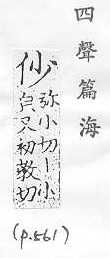 四聲篇海
仯
弥小切丨小
皃又初教切
(p.561)